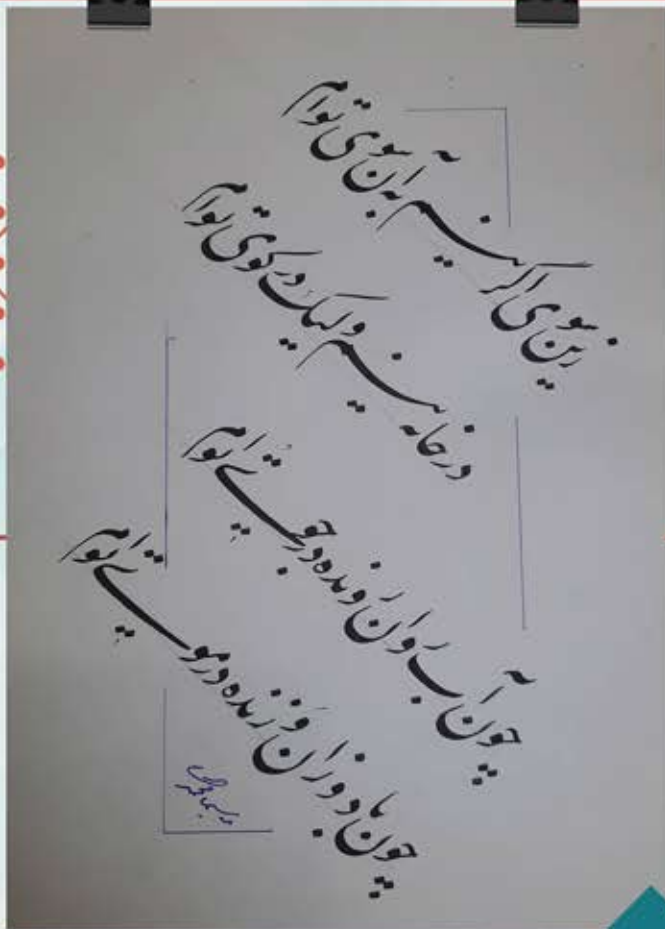 زین سوی اگر نیم به آن سوی توام
در خانه نیم ولیک در کوی توام
چون آب رَوان رَونده در جوی توام
چون باد وزان وَزنده در موی توام